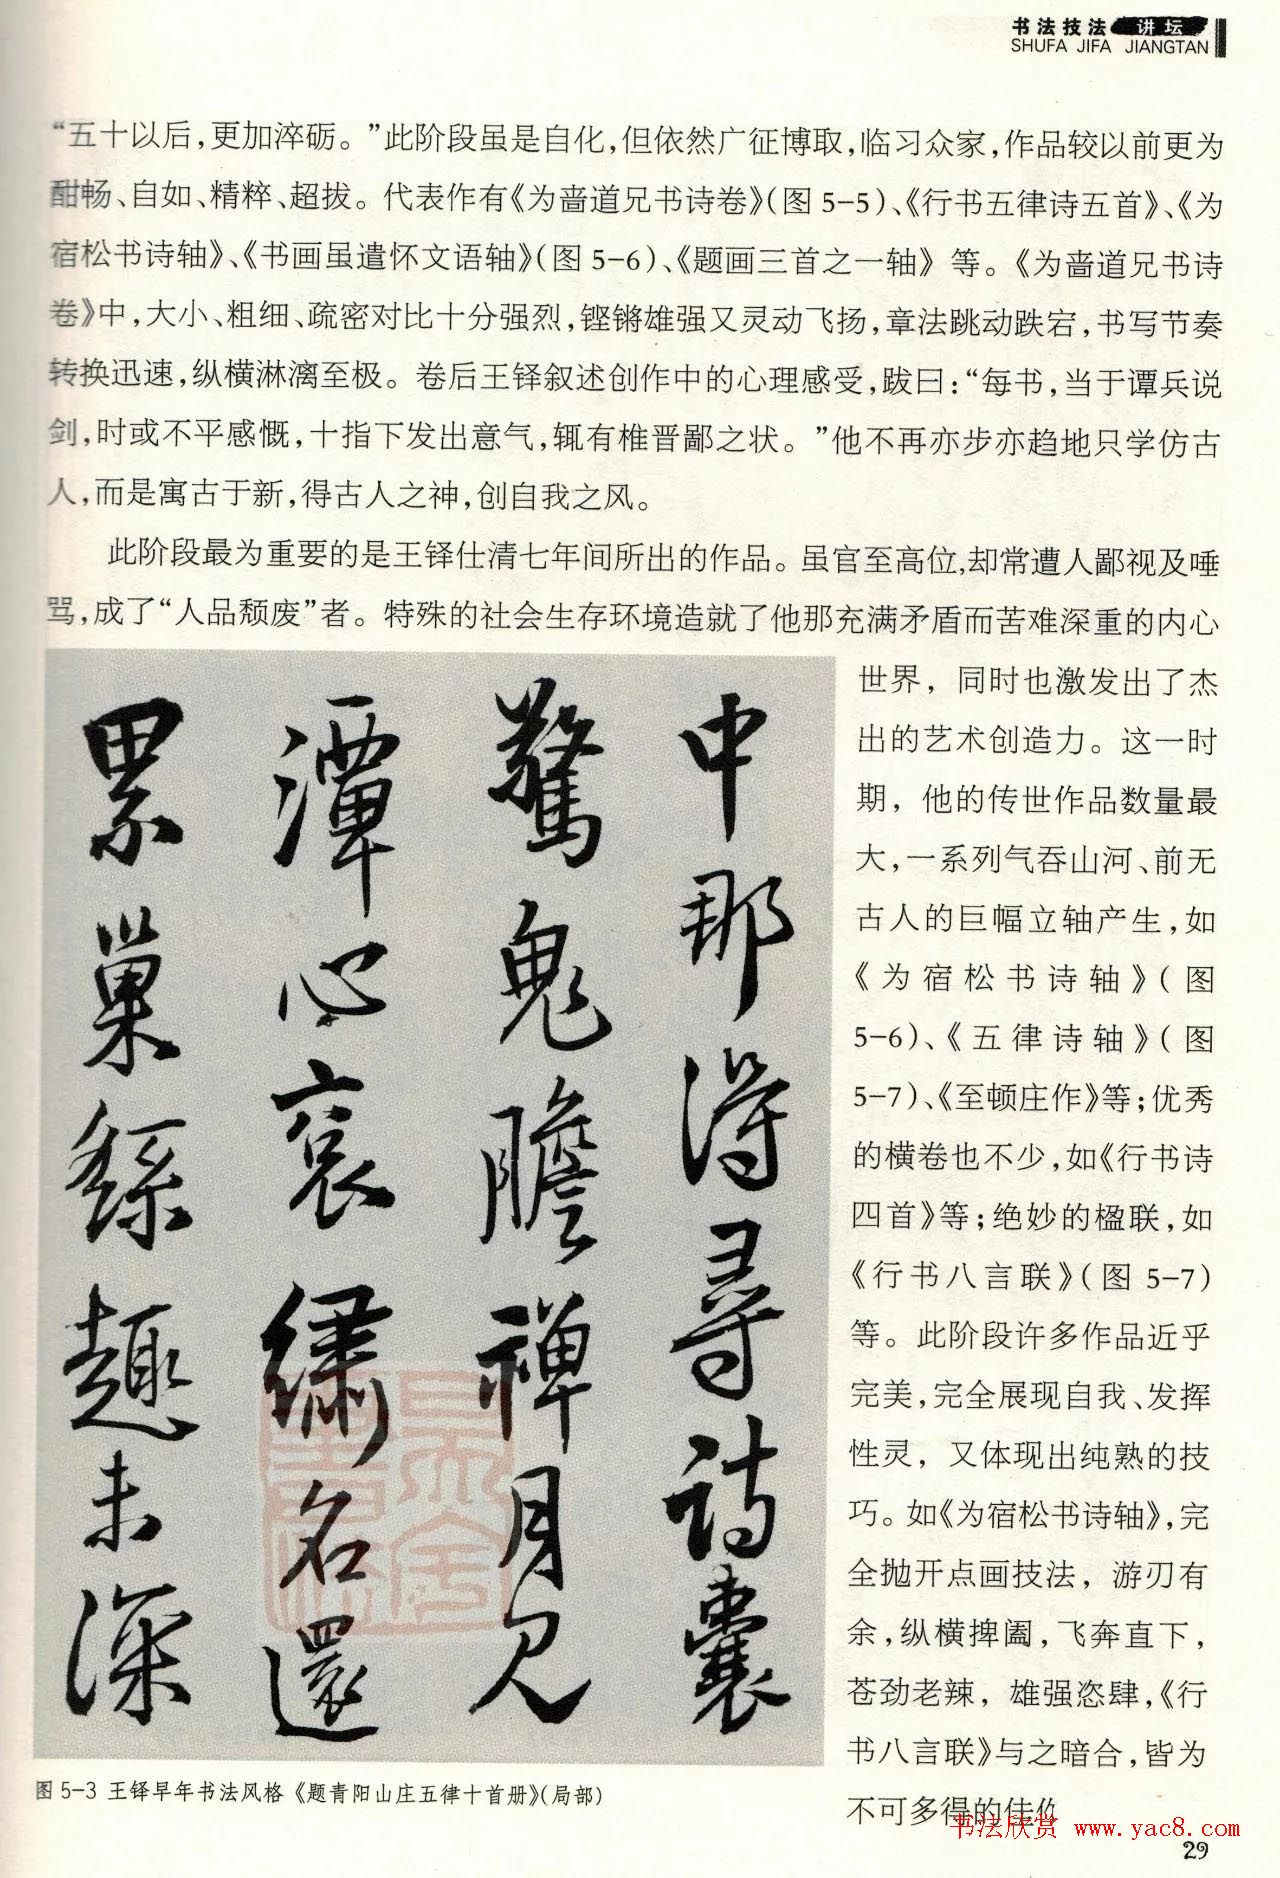 书法技法 讲坛
SHUFA JIFA JIANGTAN
“五十以后，更加淬砺。”此阶段虽是自化，但依然广征博取，临习众家，作品较以前更为
酣畅、自如、精粹、超拔。代表作有《为啬道兄书诗卷》（图 5-5）、《行书五律诗五首》、《为
宿松书诗轴》、《书画虽遣怀文语轴》（图 5-6）、《题画三首之一轴》等。《为啬道兄书诗
卷》中，大小、粗细、疏密对比十分强烈，铿锵雄强又灵动飞扬，章法跳动跌宕，书写节奏
转换迅速，纵横淋漓至极。卷后王铎叙述创作中的心理感受，跋曰：“每书，当于谭兵说
剑，时或不平感慨，十指下发出意气，辄有椎晋鄙之状。”他不再亦步亦趋地只学仿古
人，而是寓古于新，得古人之神，创自我之风。
此阶段最为重要的是王铎仕清七年间所出的作品。虽官至高位,却常遭人鄙视及唾
骂，成了“人品颓废”者。特殊的社会生存环境造就了他那充满矛盾而苦难深重的内心
世界，同时也激发出了杰
出的艺术创造力。这一时
期，他的传世作品数量最
大，一系列气吞山河、前无
古人的巨幅立轴产生，如
《为宿松书诗轴》（图
5-6）、《五律诗轴》（图
5-7）、《至顿庄作》等；优秀
的横卷也不少，如《行书诗
四首》等；绝妙的楹联，如
《行书八言联》（图 5-7）
等。此阶段许多作品近乎
完美，完全展现自我、发挥
性灵，又体现出纯熟的技
巧。如《为宿松书诗轴》，完
全抛开点画技法，游刃有
余，纵横捭阖，飞奔直下，
苍劲老辣，雄强恣肆，《行
书八言联》与之暗合，皆为
不可多得的佳
中那得尋詩囊
驚鬼膽禪月見
潭心哀繡名還
累巢繇趣未深
图 5-3 王铎早年书法风格《题青阳山庄五律十首册》（局部）
书法欣赏 www.yac8.com
29